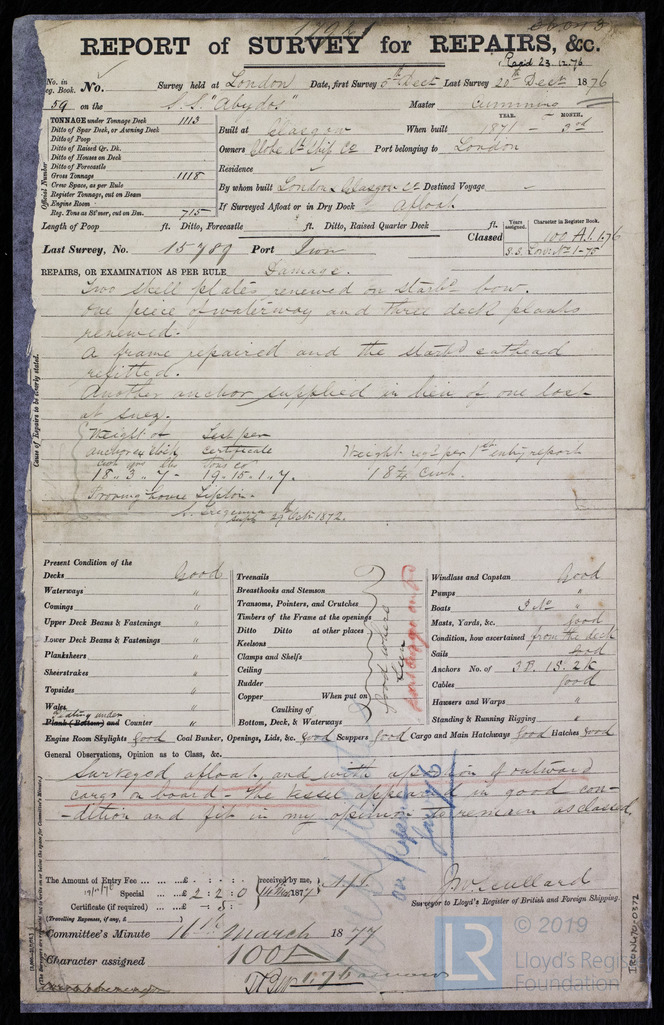 REPORT of SURVEY for REPAIRS, &c.
Rapid 23.12.76
No. in Reg. Book. No. Survey held at London Date, first Survey 5th Dect Last Survey 20th Dect 1876
59 on the S.S. "Abydos" Master Cummins
TONNAGE under Tonnage Deck 1113
Ditto of Spar Deck, or Awning Deck
Ditto of Poop
Ditto of Raised Qr. Dk.
Ditto of Houses on Deck
Ditto of Forecastle
Gross Tonnage 1118
Crew Space, as per Rule
Register Tonnage, cut on Beam
Engine Room
Reg. Tons as St'mer, cut on Bm. 715
Official Number
YEAR. MONTH.
Built at Glasgow When built 1871 - 3rd
Owners Globe St Ship Co Port belonging to London
Residence
By whom built London & Glasgow Co Destined Voyage -
If Surveyed Afloat or in Dry Dock afloat
Length of Poop ft. Ditto, Forecastle ft. Ditto, Raised Quarter Deck ft.
Years assigned. Character in Register Book.
Classed 100 A.1. 1.76
S.S. Lon. No 1-75
Last Survey, No. 15789 Port Iron
REPAIRS, OR EXAMINATION AS PER RULE Damage.
Two shell plates renewed on starbd bow.
One piece of waterway and three deck planks
renewed.
A frame repaired and the starbd cathead
refitted.
Another anchor supplied in lieu of one lost
at Suez.
Weight of Test per
anchor ex Stock certificate Weight reqd per 1st entry report
Cwts qrs lbs Tons cwt
18.. 3.. 7 - 19-15-1..7. 18¼ Cwt.
Proving house Tipton.
Supt 29th Oct 1872.
Cause of Repairs to be clearly stated.
Present Condition of the
Decks Good
Waterways "
Comings "
Upper Deck Beams & Fastenings "
Lower Deck Beams & Fastenings "
Planksheers "
Sheerstrakes "
Topsides "
Wales "
Plating under
Plank (Bottom) and Counter "
Treenails
Breasthooks and Stemson
Transoms, Pointers, and Crutches
Timbers of the Frame at the openings
Ditto Ditto at other places
Keelsons
Clamps and Shelfs
Ceiling
Rudder
Copper When put on
Caulking of
Bottom, Deck, & Waterways
Windlass and Capstan Good
Pumps "
Boats 3 No "
Masts, Yards, &c. Good
Condition, how ascertained from the deck
Sails Good
Anchors No. of 3B. 1S. 2K
Cables Good
Hawsers and Warps "
Standing & Running Rigging "
Engine Room Skylights Good Coal Bunker, Openings, Lids, &c. Good Scuppers Good Cargo and Main Hatchways Good Hatches Good
General Observations, Opinion as to Class, &c.
Surveyed afloat, and with a portion of outward
cargo on board - The vessel appeared in good con-
dition and fit in my opinion to remain as classed.
The Amount of Entry Fee £ : : received by me,
Special £ 2 : 2 : 0 1877
Certificate (if required) £ - : 5 :
(Travelling Expenses, if any, £ )
Surveyor to Lloyd's Register of British and Foreign Shipping.
Committee's Minute 16th March 1877
Character assigned 100 A 1
1.76
© 2019
LR Lloyd's Register Foundation
IRON470-0372